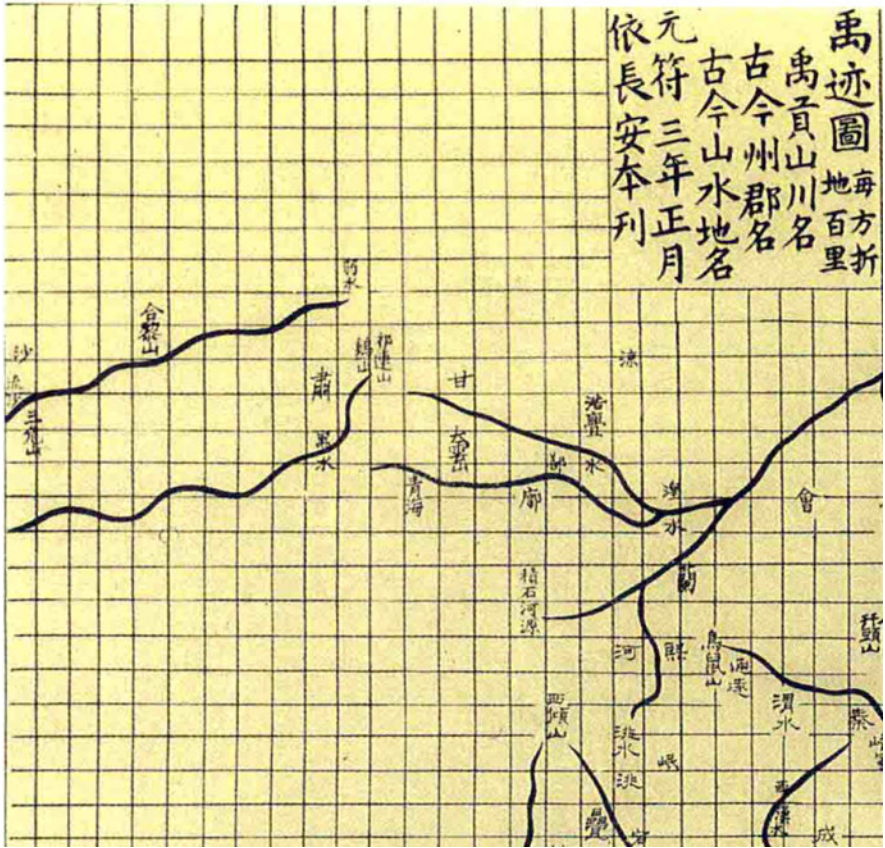 禹迹圖
每方折
地百里
禹貢山川名
古今州郡名
古今山水地名
元符三年正月
依長安本刊
弱水
合黎山
沙
三危山
祁連山
鷄山
肅
黑水
甘
涼
浩亹水
鄯
廓
青海
湟水
會
蘭
積石河源
河
熙
鳥鼠山
幵頭山
渭水
秦
西傾山
洮水
洮
岷
疊
宕
西漢水
成